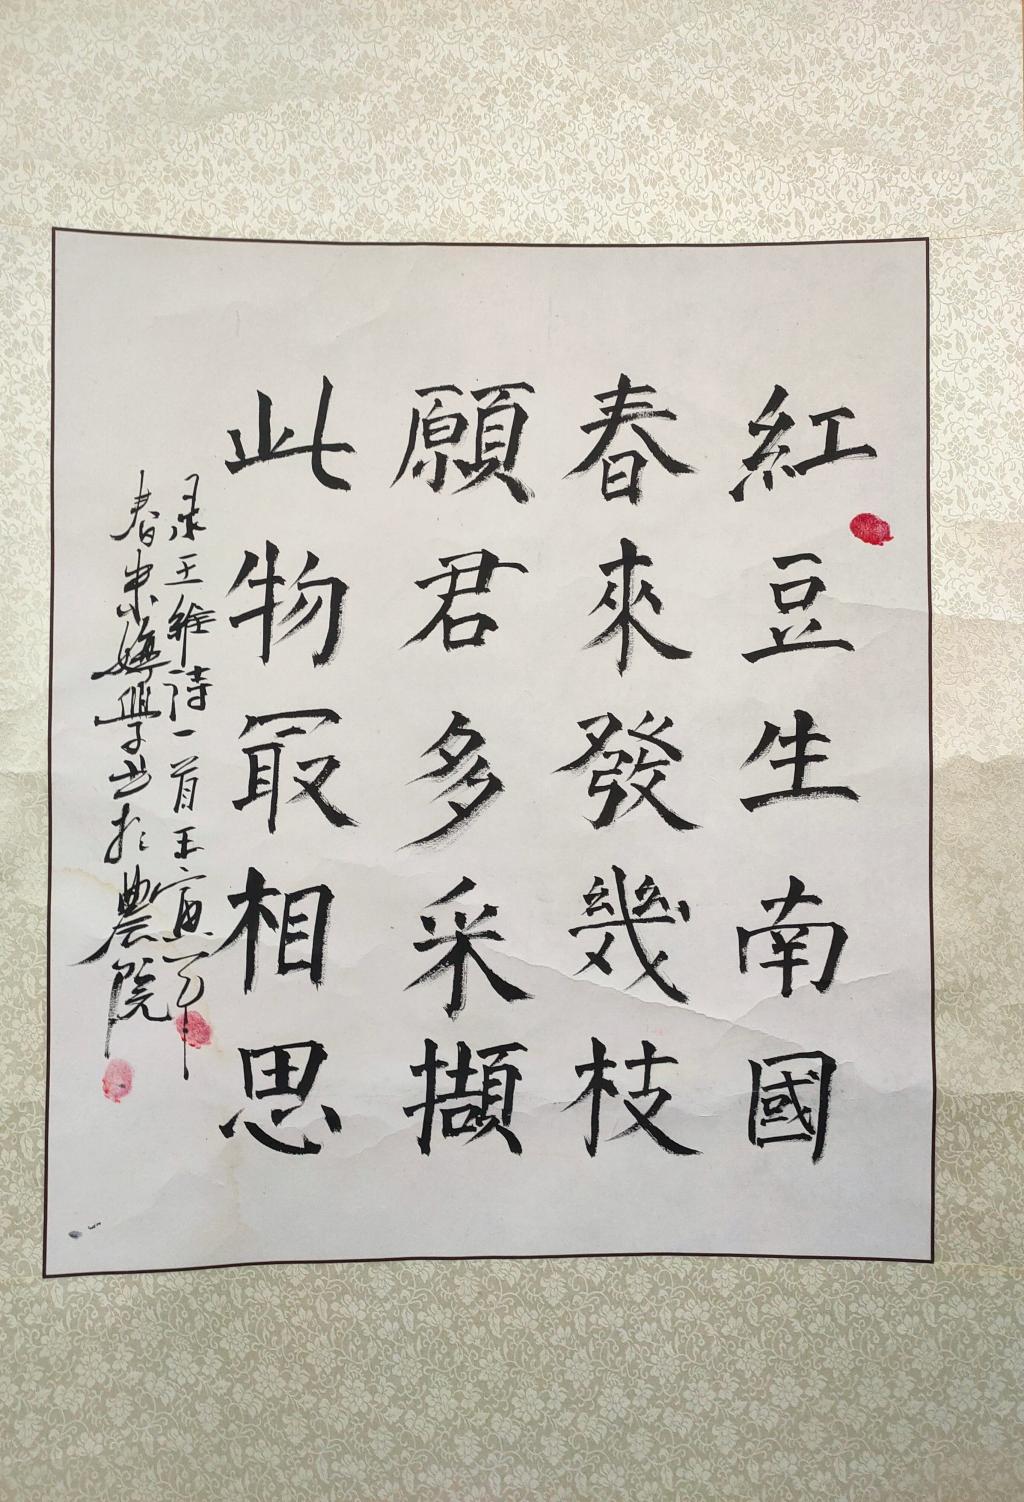 紅豆生南國
春來發幾枝
願君多采擷
此物冣相思
录王維诗一首壬寅年
春宋婷學书於農院